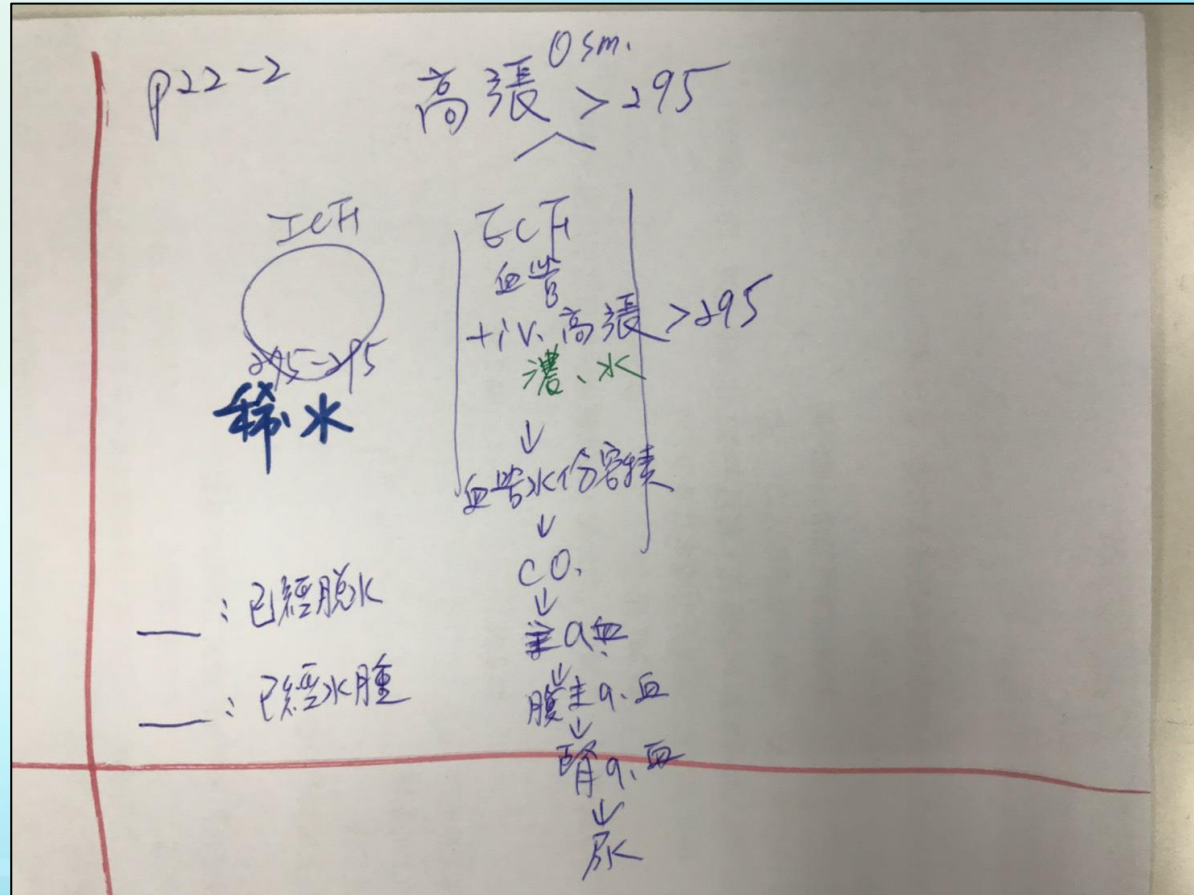 P22-2
高張 Osm. >295
ICF
275-295
稀水
ECF
血管
+iv. 高張 >295
濃、水
↓
血管水份容積
↓
CO.
↓
主a血
↓
腹主a.血
↓
腎a.血
↓
尿
___:已經脫水
___:已經水腫